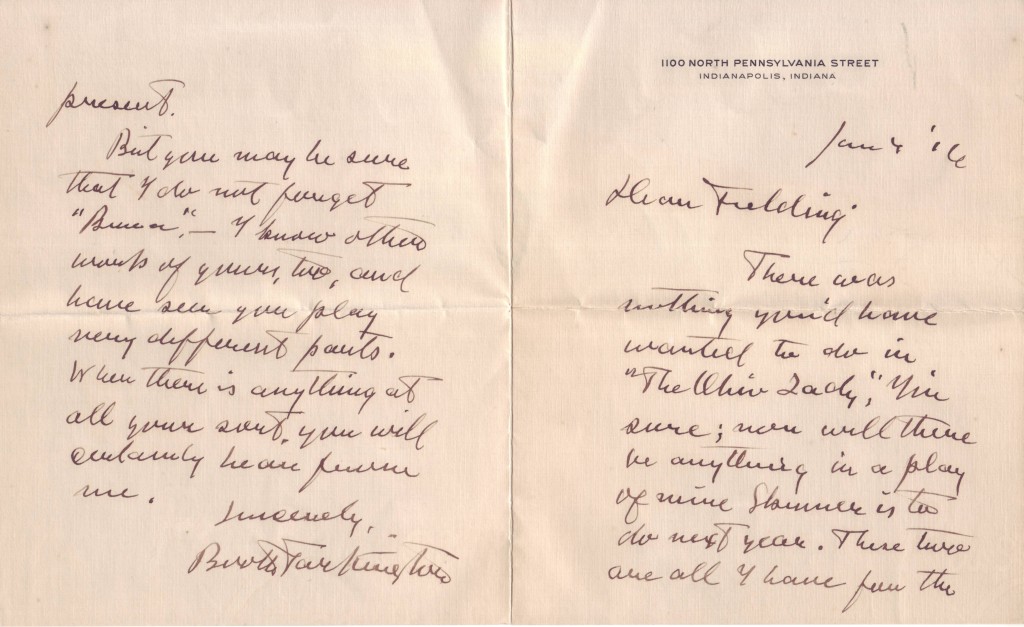 1100 NORTH PENNSYLVANIA STREET
INDIANAPOLIS, INDIANA
Jan 4 '16
Dear Fielding:
There was
nothing you'd have
wanted to do in
"The Ohio Lady", I'm
sure; nor will there
be anything in a play
of mine Skinner is to
do next year. These two
are all I have for the
present.
But you may be sure
that I do not forget
— I know other
work of yours, too, and
have seen you play
very different parts.
When there is anything at
all your sort, you will
certainly hear from
me.
Sincerely,
Booth Tarkington